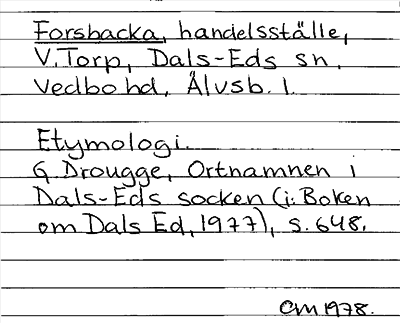 Forsbacka, handelsställe,
V. Torp, Dals-Eds sn,
Vedbo hd, Älvsb. l.
Etymologi.
G. Drougge, Ortnamnen i
Dals-Eds socken (i: Boken
om Dals Ed, 1977), s. 648.
OM 1978.